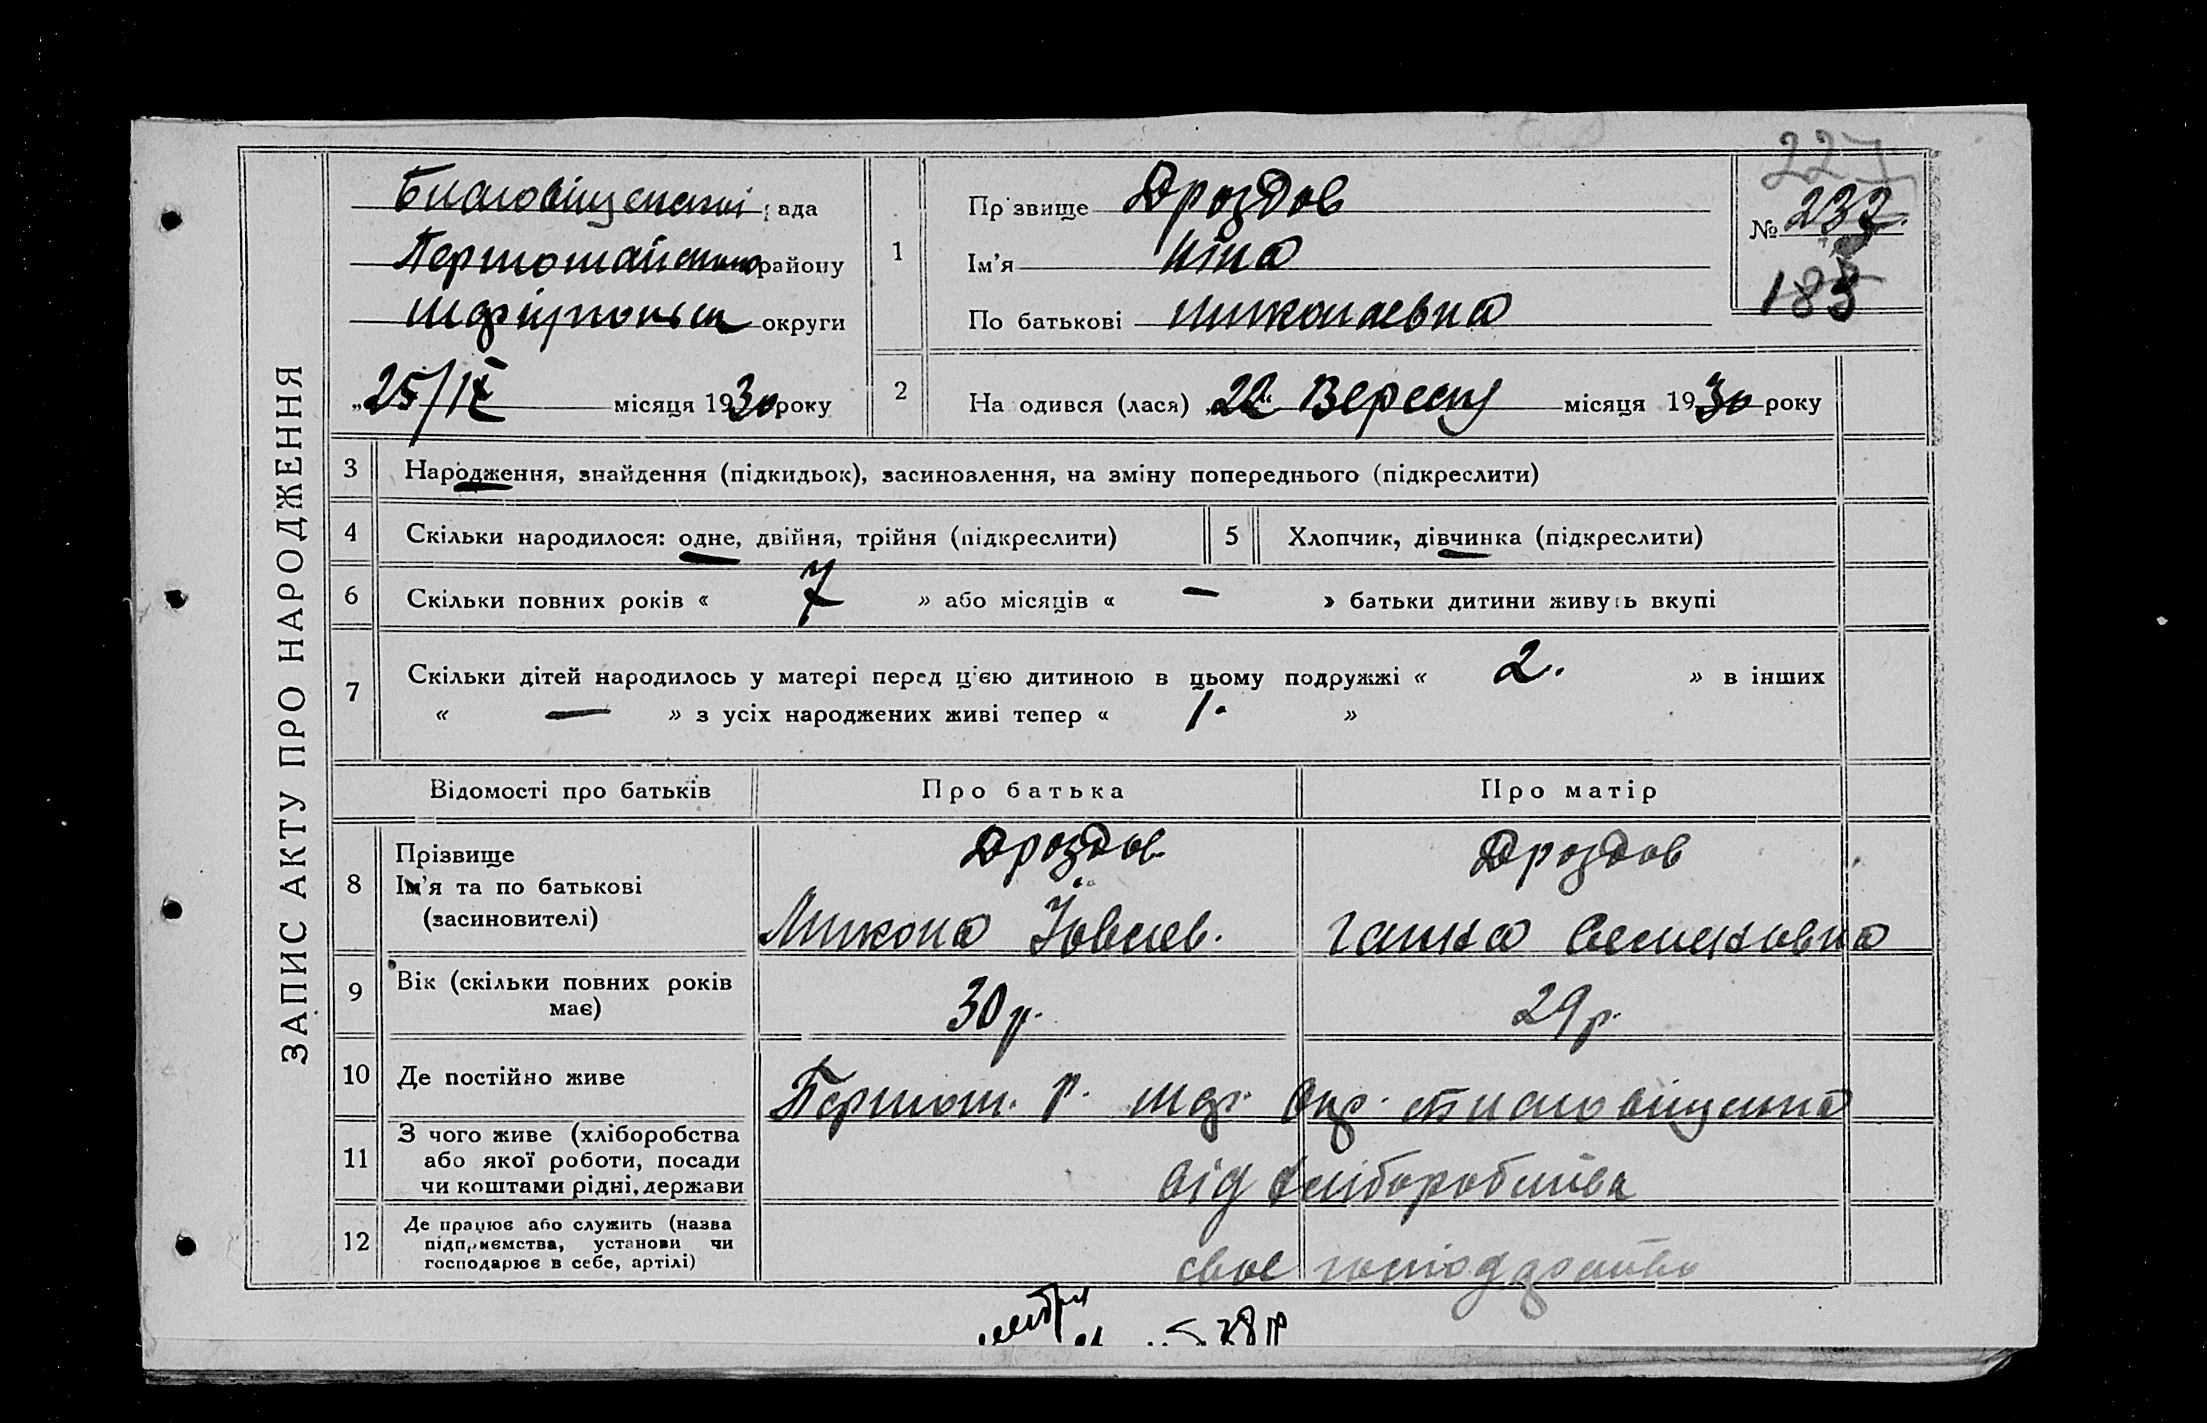 ЗАПИС АКТУ ПРО НАРОДЖЕННЯ
Благовіщенської рада
Першомайського району
округи
"25/IX місяця 1930 року
1
Прізвище Дроздов
Ім'я Ніна
По батькові Николаевна
227
№ 232
183
2
На одився (лася) „22" Вересня місяця 1930 року
3 Народження, знайдення (підкидьок), засиновлення, на зміну попереднього (підкреслити)
4 Скільки народилося: одне, двійня, трійня (підкреслити) 5 Хлопчик, дівчинка (підкреслити)
6 Скільки повних років « 7 » або місяців « — » батьки дитини живуть вкупі
7 Скільки дітей народилось у матері перед ц'єю дитиною в цьому подружжі « 2. » в інших
« — » з усіх народжених живі тепер « 1. »
Відомості про батьків Про батька Про матір
8 Прізвище
Ім'я та по батькові
(засиновителі)
Дроздов Дроздов
Микола Ганна
9 Вік (скільки повних років
має)
30 р. 29 р.
10 Де постійно живе
Першом. р. Окр. Благовіщенка
11 З чого живе (хліборобства
або якої роботи, посади
чи коштами рідні, держави
від хліборобства
12 Де працює або служить (назва
підприємства, установи чи
господарює в себе, артілі)
своє господарство